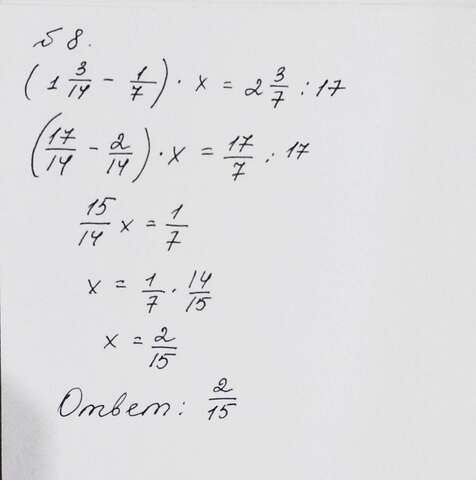 Б 8.
(1 3/14 - 1/7) · x = 2 3/7 : 17
(17/14 - 2/14) · x = 17/7 : 17
15/14 x = 1/7
x = 1/7 · 14/15
x = 2/15
Ответ: 2/15